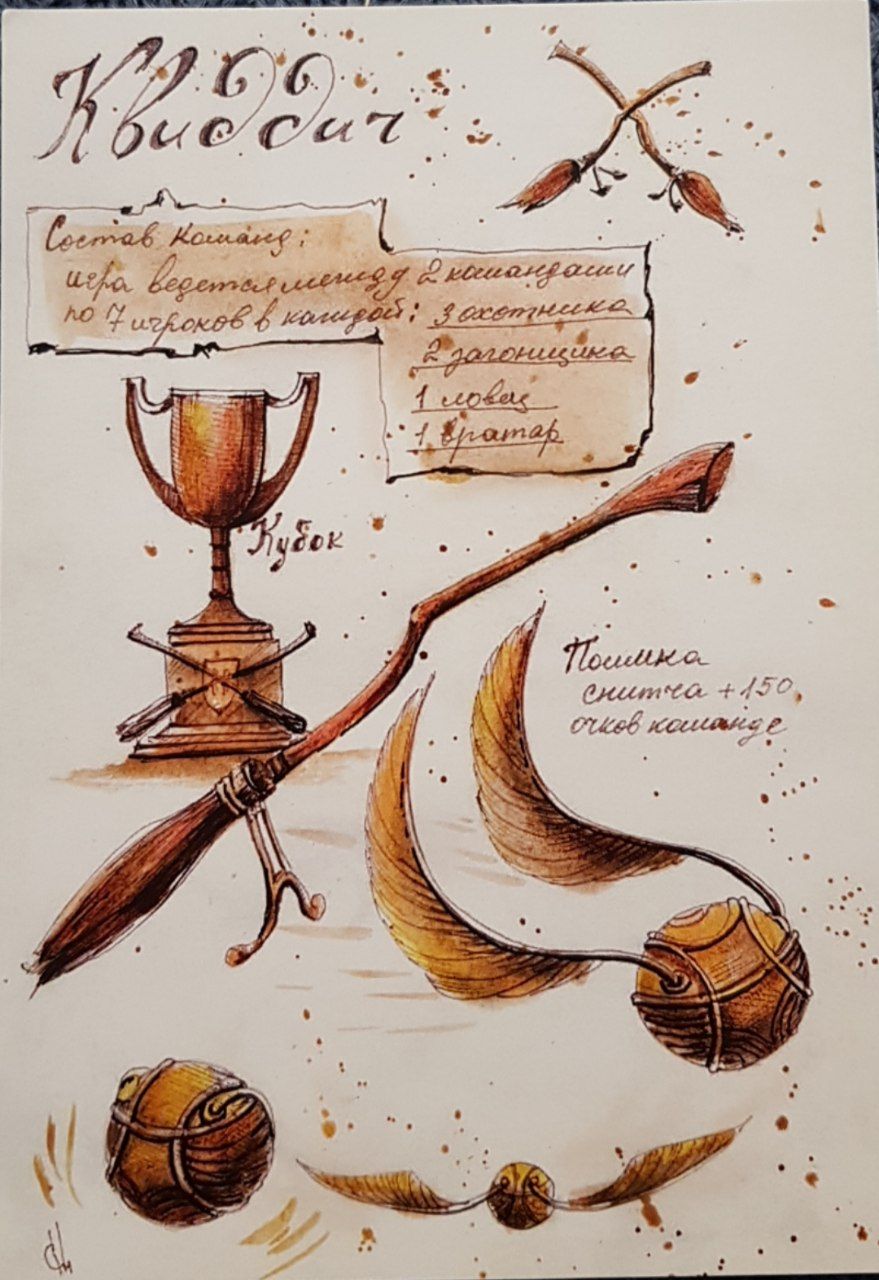 Квиддич
Состав команд:
игра ведется между 2 командами
по 7 игроков в каждой: 3 охотника
2 загонщика
1 ловец
1 вратар
Кубок
Поимка
снитча +150
очков команде